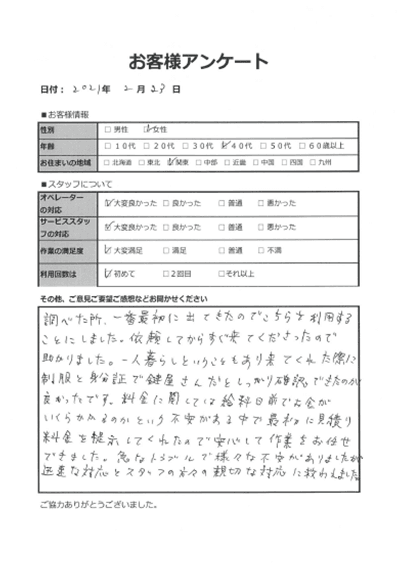 お客様アンケート
日付： 2021年 2月 23日
■お客様情報
性別 □男性 ☑女性
年齢 □10代 □20代 □30代 ☑40代 □50代 □60歳以上
お住まいの地域 □北海道 □東北 ☑関東 □中部 □近畿 □中国 □四国 □九州
■スタッフについて
オペレーターの対応 ☑大変良かった □良かった □普通 □悪かった
サービススタッフの対応 ☑大変良かった □良かった □普通 □悪かった
作業の満足度 ☑大変満足 □満足 □普通 □不満
利用回数は ☑初めて □2回目 □それ以上
その他、ご意見ご要望ご感想などお聞かせください
調べた所、一番最初に出てきたのでこちらを利用する
ことにしました。依頼してからすぐ来てくださったので
助かりました。一人暮らしということもあり来てくれた際に
制服と身分証で鍵屋さんだとしっかり確認できたのが
良かったです。料金に関しては給料日前でお金が
いくらかかるのかという不安がある中で最初に見積り
料金を提示してくれたので安心して作業をお任せ
できました。急なトラブルで様々な不安がありましたが
迅速な対応とスタッフの方々の親切な対応に救われました。
ご協力ありがとうございました。